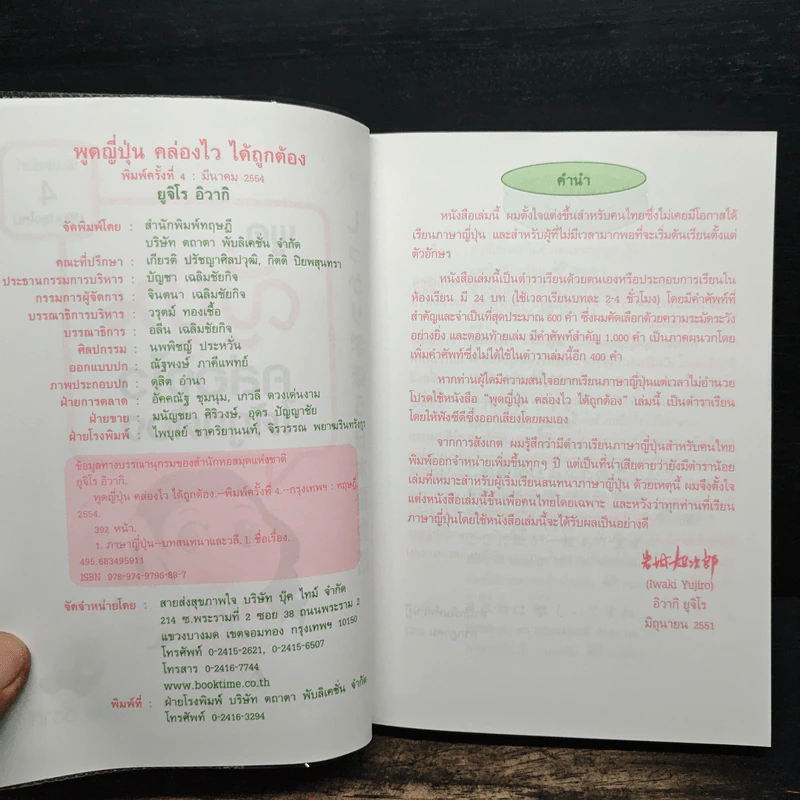 พูดญี่ปุ่น คล่องไว ได้ถูกต้อง
พิมพ์ครั้งที่ 4 : มีนาคม 2554
ยูจิโร อิวากิ
จัดพิมพ์โดย : สำนักพิมพ์ทฤษฎี
บริษัท ตถาตา พับลิเคชั่น จำกัด
คณะที่ปรึกษา : เกียรติ ปรัชญาศิลปวุฒิ, กิตติ ปิยพสุนทรา
ประธานกรรมการบริหาร : บัญชา เฉลิมชัยกิจ
กรรมการผู้จัดการ : จินตนา เฉลิมชัยกิจ
บรรณาธิการบริหาร : วรุตม์ ทองเชื้อ
บรรณาธิการ : อลีน เฉลิมชัยกิจ
ศิลปกรรม : นพพิชญ์ ประหวั่น
ออกแบบปก : ณัฐพงษ์ ภาคีแพทย์
ภาพประกอบปก : ดุสิต อำนา
ฝ่ายการตลาด : อัคคณัฐ ชุมนุม, เกวลี ดวงเด่นงาม
ฝ่ายขาย : มนัญชยา ศิริวงษ์, อุดร ปัญญาชัย
ฝ่ายโรงพิมพ์ : ไพบูลย์ ชาคริยานนท์, จิรวรรณ
ข้อมูลทางบรรณานุกรมของสำนักหอสมุดแห่งชาติ
ยูจิโร อิวากิ.
พูดญี่ปุ่น คล่องไว ได้ถูกต้อง.--พิมพ์ครั้งที่ 4.--กรุงเทพฯ : ทฤษฎี,
2554.
292 หน้า.
1. ภาษาญี่ปุ่น--บทสนทนาและวลี. I. ชื่อเรื่อง.
495.683495911
ISBN 978-974-9796-89-7
จัดจำหน่ายโดย : สายส่งสุขภาพใจ บริษัท บุ๊ค ไทม์ จำกัด
214 ซ.พระรามที่ 2 ซอย 38 ถนนพระราม 2
แขวงบางมด เขตจอมทอง กรุงเทพฯ 10150
โทรศัพท์ 0-2415-2621, 0-2415-6507
โทรสาร 0-2416-7744
www.booktime.co.th
พิมพ์ที่ : ฝ่ายโรงพิมพ์ บริษัท ตถาตา พับลิเคชั่น จำกัด
โทรศัพท์ 0-2416-3294
คำนำ
หนังสือเล่มนี้ ผมตั้งใจแต่งขึ้นสำหรับคนไทยซึ่งไม่เคยมีโอกาสได้
เรียนภาษาญี่ปุ่น และสำหรับผู้ที่ไม่มีเวลามากพอที่จะเริ่มต้นเรียนตั้งแต่
ตัวอักษร
หนังสือเล่มนี้เป็นตำราเรียนด้วยตนเองหรือประกอบการเรียนใน
ห้องเรียน มี 24 บท (ใช้เวลาเรียนบทละ 2-4 ชั่วโมง) โดยมีคำศัพท์ที่
สำคัญและจำเป็นที่สุดประมาณ 600 คำ ซึ่งผมคัดเลือกด้วยความระมัดระวัง
อย่างยิ่ง และตอนท้ายเล่ม มีคำศัพท์สำคัญ 1,000 คำ เป็นภาคผนวกโดย
เพิ่มคำศัพท์ซึ่งไม่ได้ใช้ในตำราเล่มนี้อีก 400 คำ
หากท่านผู้ใดมีความสนใจอยากเรียนภาษาญี่ปุ่นแต่เวลาไม่อำนวย
โปรดใช้หนังสือ "พูดญี่ปุ่น คล่องไว ได้ถูกต้อง" เล่มนี้ เป็นตำราเรียน
โดยให้ฟังซีดีซึ่งออกเสียงโดยผมเอง
จากการสังเกต ผมรู้สึกว่ามีตำราเรียนภาษาญี่ปุ่นสำหรับคนไทย
พิมพ์ออกจำหน่ายเพิ่มขึ้นทุกๆ ปี แต่เป็นที่น่าเสียดายว่ายังมีตำราน้อย
เล่มที่เหมาะสำหรับผู้เริ่มเรียนสนทนาภาษาญี่ปุ่น ด้วยเหตุนี้ ผมจึงตั้งใจ
แต่งหนังสือเล่มนี้ขึ้นเพื่อคนไทยโดยเฉพาะ และหวังว่าทุกท่านที่เรียน
ภาษาญี่ปุ่นโดยใช้หนังสือเล่มนี้จะได้รับผลเป็นอย่างดี
(Iwaki Yujiro)
อิวากิ ยูจิโร
มิถุนายน 2551